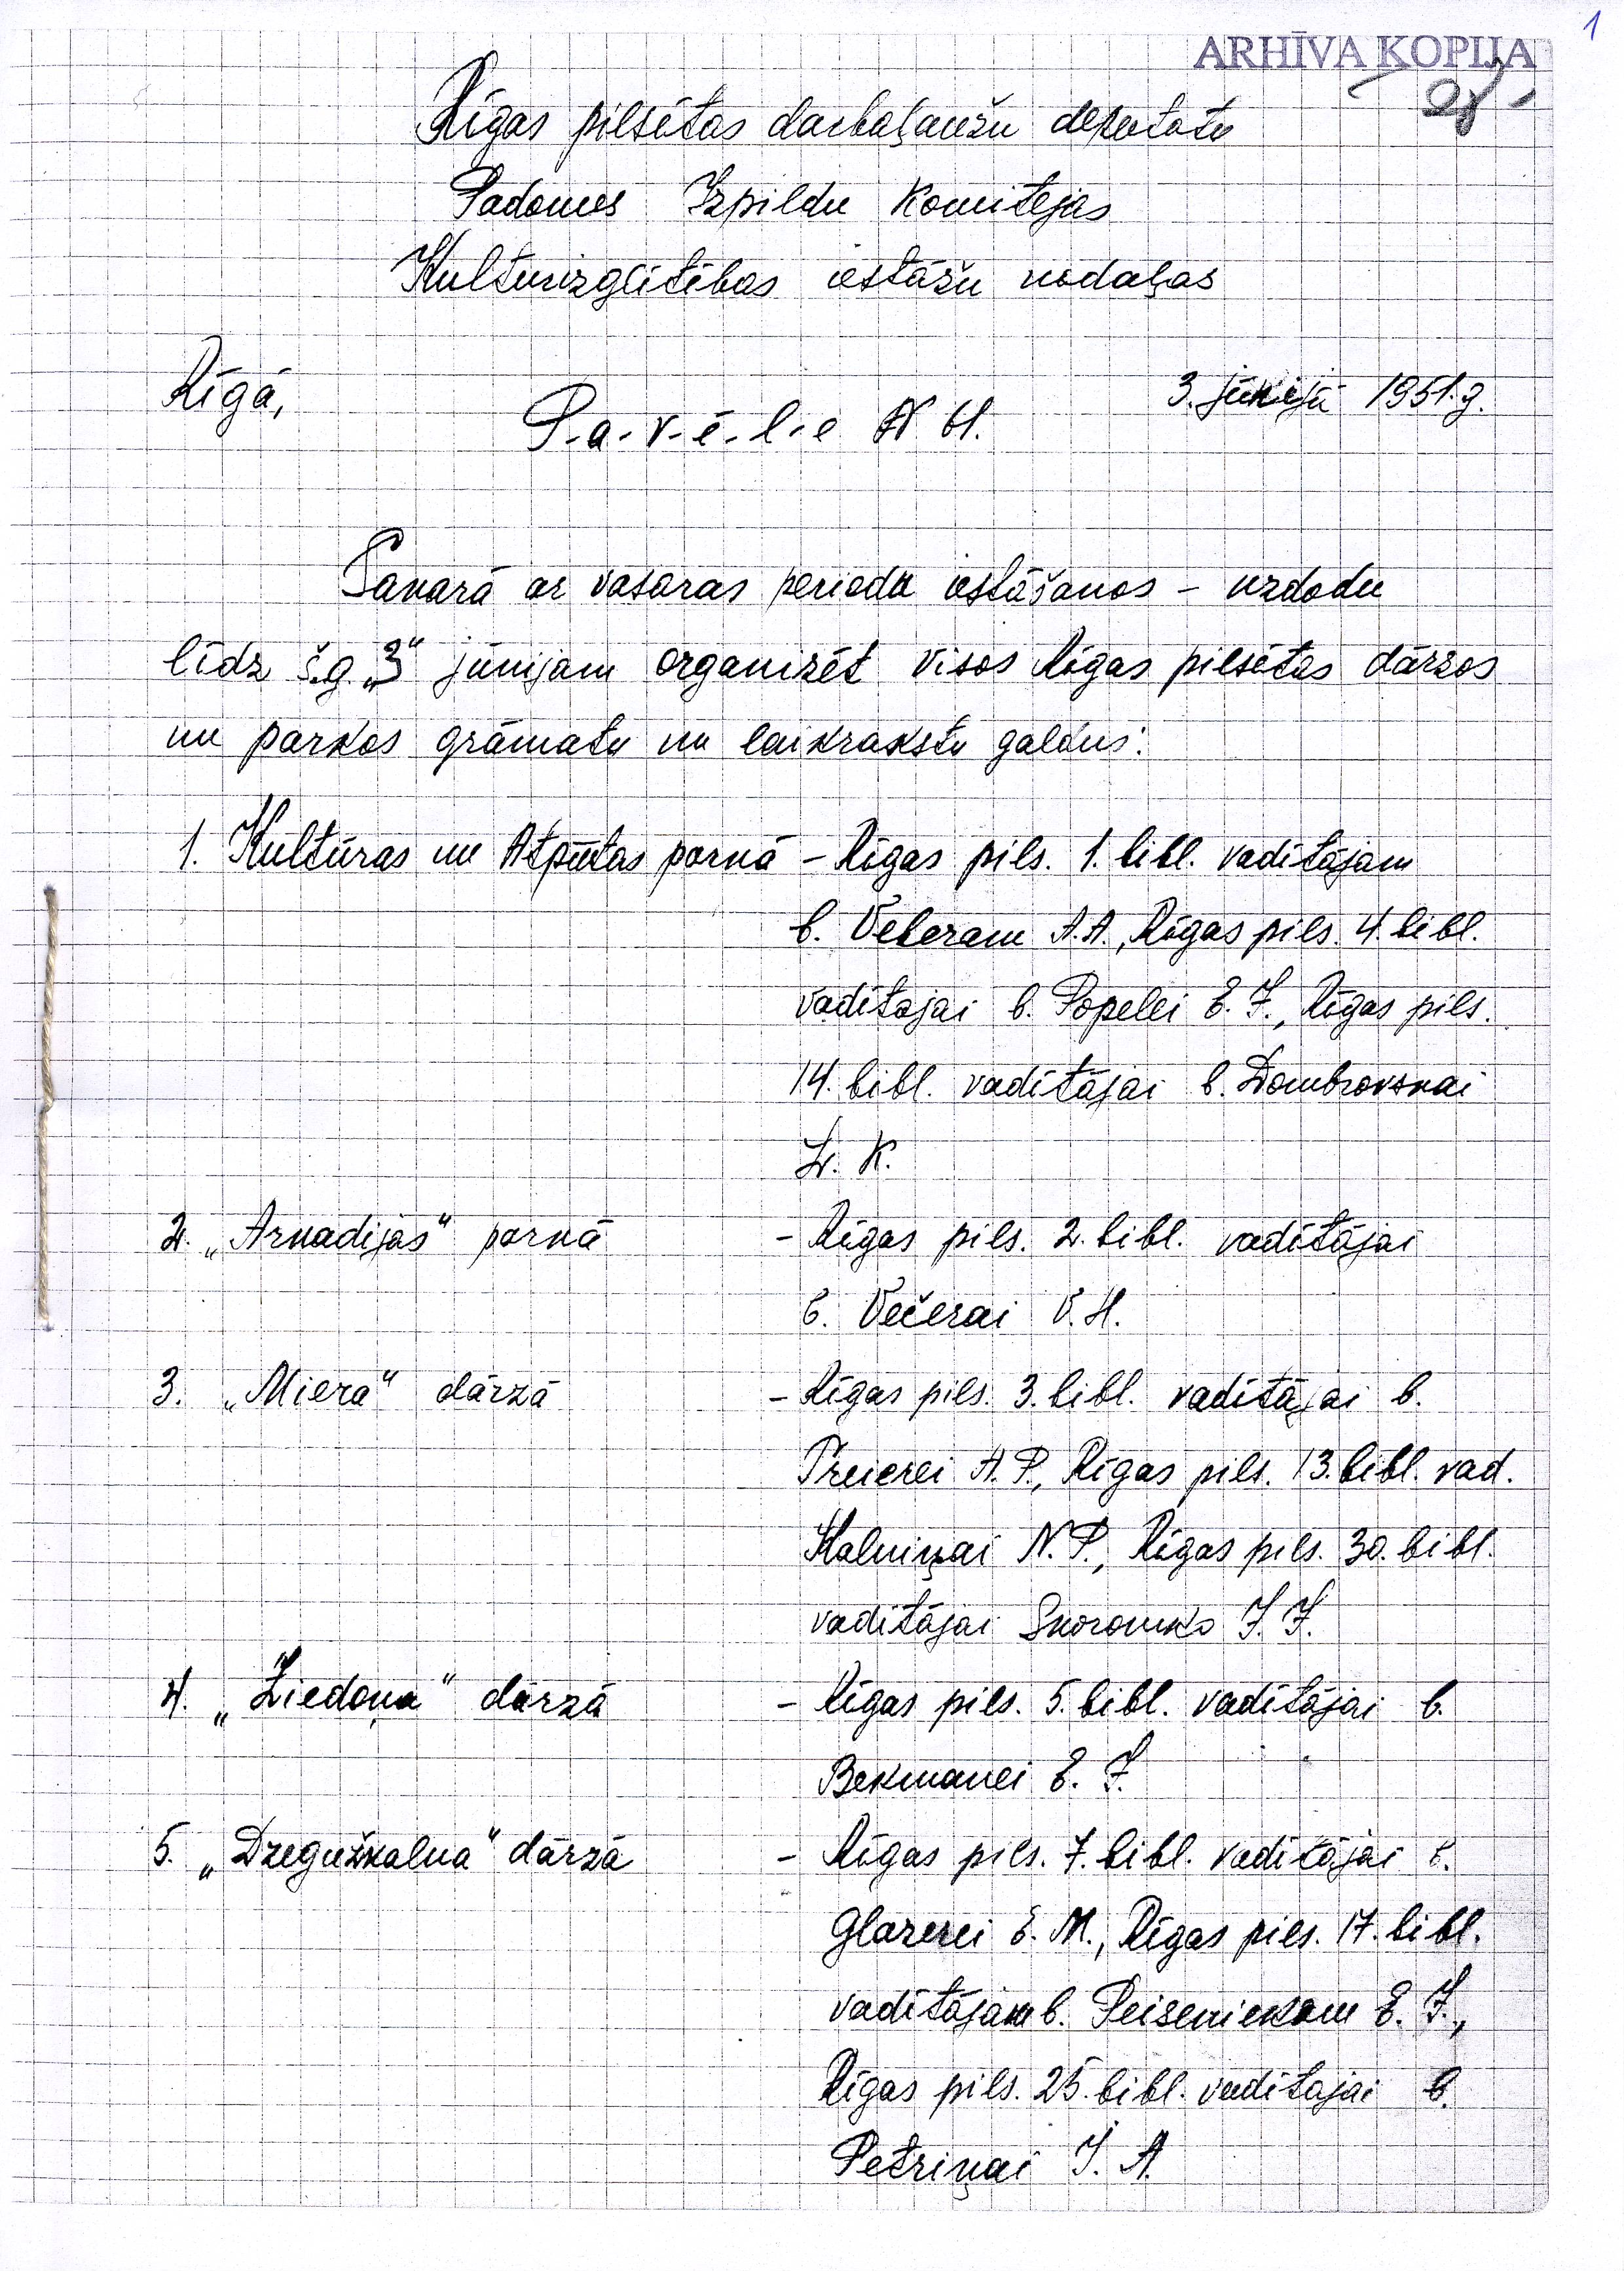 1
ARHĪVA KOPIJA
28
Rīgas pilsētas darbaļaužu deputātu
Padomes Izpildu Komitejas
Kultūrizglītības iestāžu nodaļas
Rīgā,
3. jūnijā 1951.g.
P-a-v-ē-l-e N 41.
Sakarā ar vasaras perioda iestāšanos – uzdodu
līdz š.g. „3“ jūnijam organizēt visos Rīgas pilsētas dārzos
un parkos grāmatu un laikrakstu galdus:
1. Kultūras un Atpūtas parkā – Rīgas pils. 1. bibl. vadītājam
b. Veberam A.A., Rīgas pils. 4. bibl.
vadītājai b. Popelei E. J., Rīgas pils.
14. bibl. vadītājai b. Dombrovskai
L. K.
2. „Arkadijas“ parkā – Rīgas pils. 2. bibl. vadītājai
b. Večerai V. H.
3. „Miera“ dārzā – Rīgas pils. 3. bibl. vadītājai b.
Treierei A. P., Rīgas pils. 13. bibl. vad.
Kalniņai N. P., Rīgas pils. 30. bibl.
vadītājai Skoromko J. J.
4. „Ziedoņa“ dārzā – Rīgas pils. 5. bibl. vadītājai b.
Bekmanei E. J.
5. „Dzegužkalna“ dārzā – Rīgas pils. 7. bibl. vadītājai b.
Glazerei E. M., Rīgas pils. 17. bibl.
vadītājam b. Peiseniekam E. J.,
Rīgas pils. 25. bibl. vadītājai b.
Petriņai J. A.